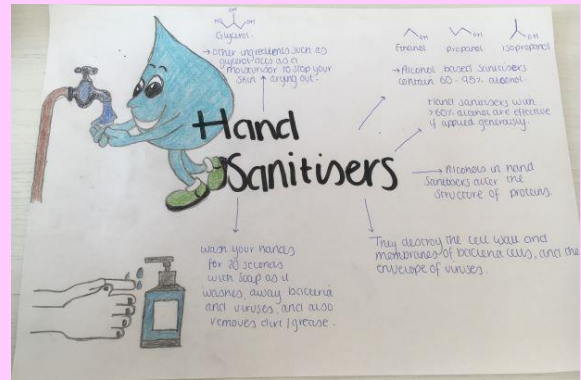 OH
HO
OH
Glycerol
→ Other ingredients such as
glycerol acts as a
moisturisor to stop your
skin drying out.
OH
OH
OH
Ethanol
Propanol
Isopropanol
→ Alcohol based sanitisers
contain 60-95% alcohol.
Hand sanitisers with
>60% alcohol are effective
if applied generously.
→ Alcohols in hand
sanitisers alter the
structure of proteins.
Hand
Sanitisers
They destroy the cell wall and
membranes of bacteria cells, and the
envelope of viruses.
wash your hands
for 20 seconds
with soap as it
washes away bacteria
and viruses, and also
removes dirt/grease.